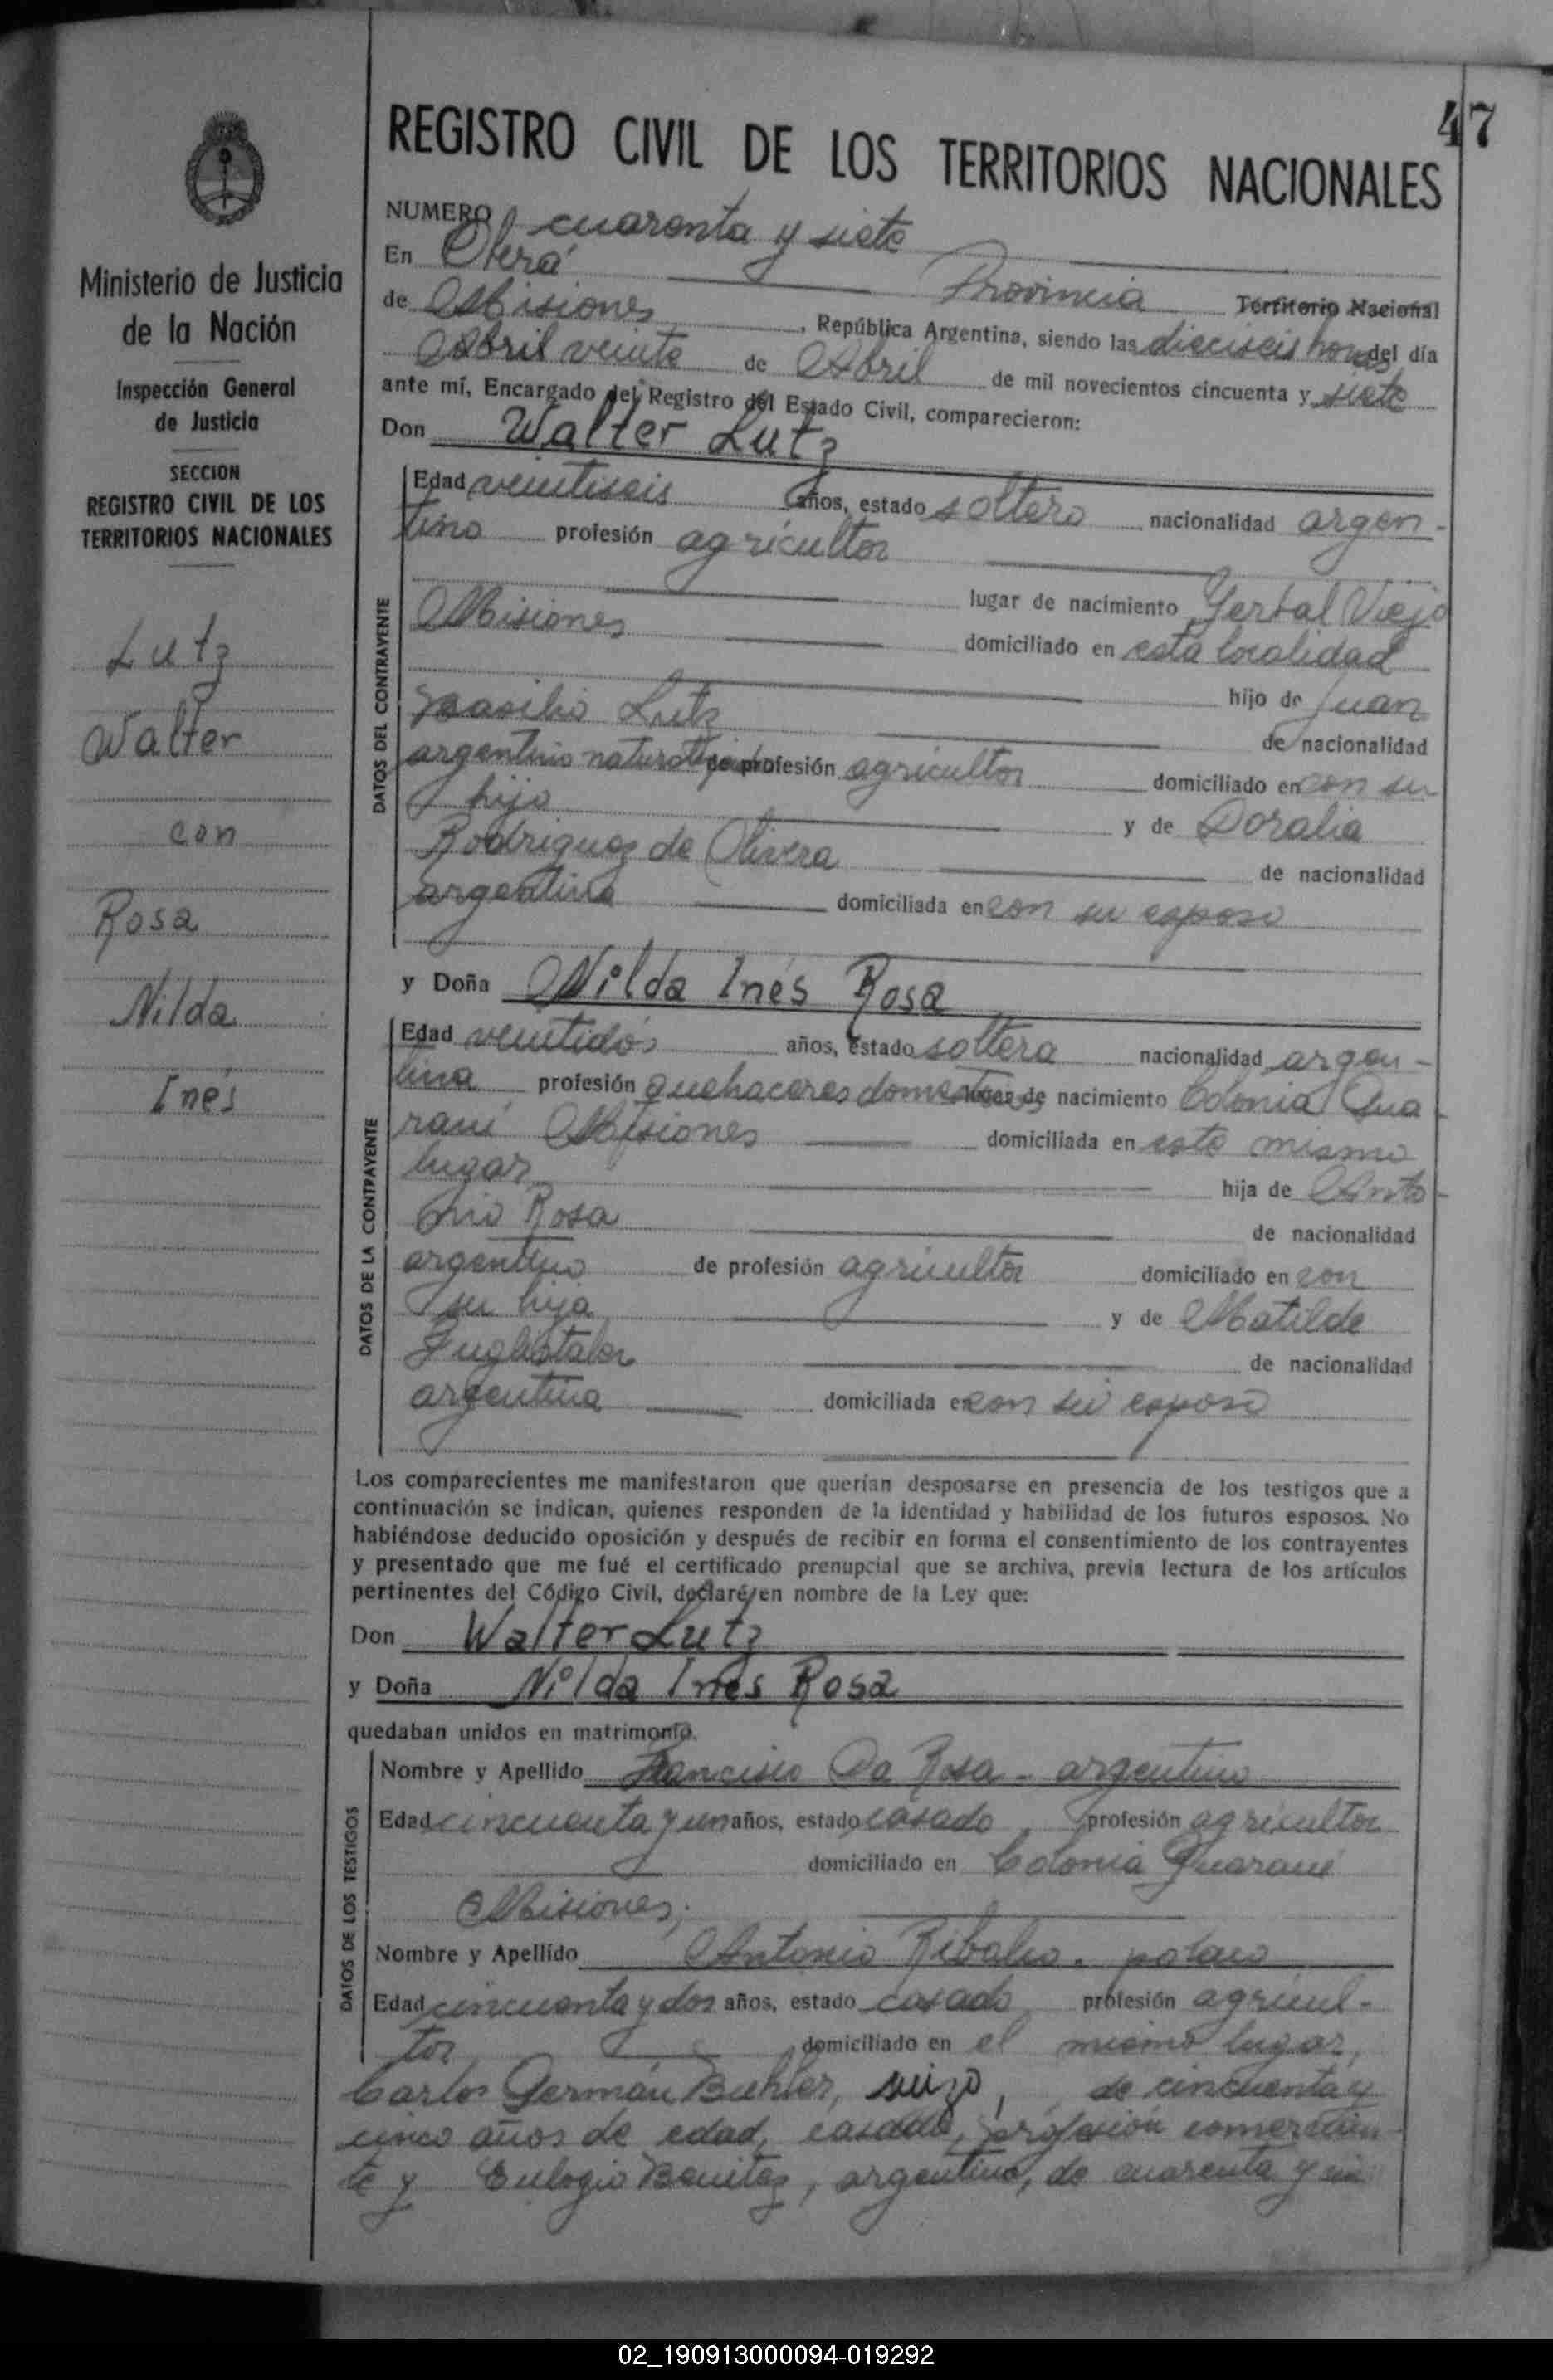 47
REGISTRO CIVIL DE LOS TERRITORIOS NACIONALES
Ministerio de Justicia
de la Nación
Inspección General
de Justicia
SECCION
REGISTRO CIVIL DE LOS
TERRITORIOS NACIONALES
Lutz
Walter
con
Rosa
Nilda
Inés
NUMERO cuarenta y siete
En Oberá Provincia Territorio Nacional
de Misiones, República Argentina, siendo las dieciseis horas del día
Abril veinte de Abril de mil novecientos cincuenta y siete
ante mí, Encargado del Registro del Estado Civil, comparecieron:
Don Walter Lutz
DATOS DEL CONTRAYENTE
Edad veintiseis años, estado soltero nacionalidad argen-
tino profesión agricultor
lugar de nacimiento Yerbal Viejo
Misiones domiciliado en esta localidad
hijo de Juan
Basilio Lutz de nacionalidad
argentino naturalizado de profesión agricultor domiciliado en con su
hijo y de Doralia
Rodriguez de Olivera de nacionalidad
argentina domiciliada en con su esposo
y Doña Nilda Inés Rosa
DATOS DE LA CONTRAYENTE
Edad veintidós años, estado soltera nacionalidad argen-
tina profesión quehaceres domesticos lugar de nacimiento Colonia Gua-
raní Misiones domiciliada en este mismo
lugar hija de Anto-
nio Rosa de nacionalidad
argentino de profesión agricultor domiciliado en con
su hija y de Matilde
de nacionalidad
argentina domiciliada en con su esposo
Los comparecientes me manifestaron que querían desposarse en presencia de los testigos que a
continuación se indican, quienes responden de la identidad y habilidad de los futuros esposos. No
habiéndose deducido oposición y después de recibir en forma el consentimiento de los contrayentes
y presentado que me fué el certificado prenupcial que se archiva, previa lectura de los artículos
pertinentes del Código Civil, declaré en nombre de la Ley que:
Don Walter Lutz
y Doña Nilda Inés Rosa
quedaban unidos en matrimonio.
DATOS DE LOS TESTIGOS
Nombre y Apellido Francisco Da Rosa - argentino
Edad cincuenta y un años, estado casado profesión agricultor
domiciliado en Colonia Guaraní
Misiones;
Nombre y Apellido Antonio - polaco
Edad cincuenta y dos años, estado casado profesión agricul-
tor domiciliado en el mismo lugar,
Carlos Germán Buhler, suizo, de cincuenta y
cinco años de edad, casado, profesión comercian-
te y Eulogio Benitez, argentino, de cuarenta y
02_190913000094-019292